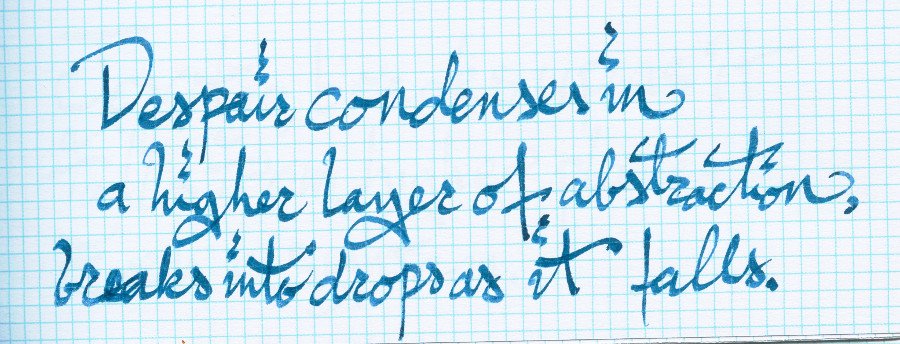 Despair condenses in
a higher layer of abstraction,
breaks into drops as it falls.